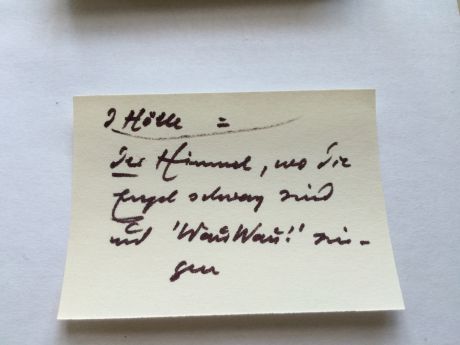 Hölle =
der Himmel, wo die
Engel schwarz sind
und 'WauWau!' sin-
gen